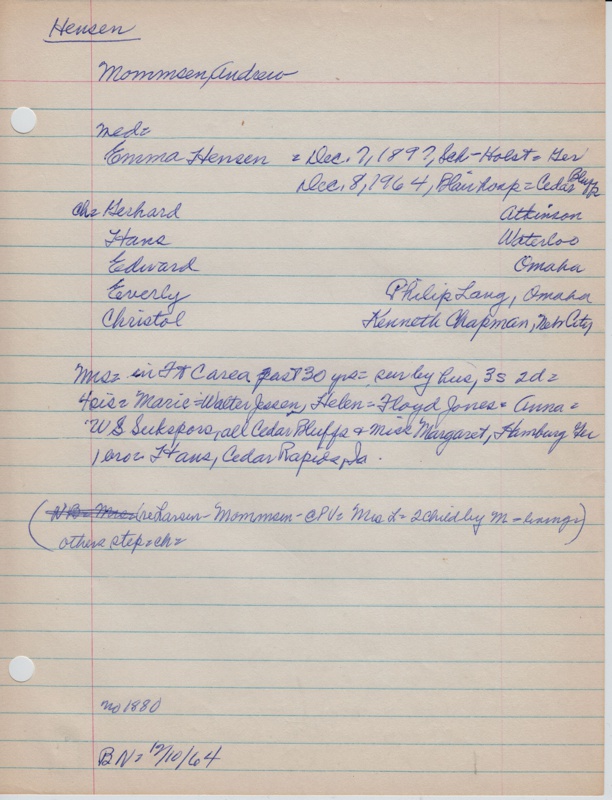 Hensen
Mommsen, Andrew
med=
Emma Hensen = Dec. 7, 1897, Sch-Holst= Ger
Dec. 8, 1964, Blair hosp = Cedar Bluffs
ch= Gerhard Atkinson
Hans Waterloo
Edward Omaha
Everly Philip Lang, Omaha
Christol Kenneth Chapman, Nebr City
Mrs= in Ft C area past 30 yrs= sur by hus, 3s 2d=
4 sis= Marie=Walter Jessen, Helen=Floyd Jones= Anna=
W S Sukspors, all Cedar Bluffs & Miss Margaret, Hamburg Ger
1 bro= Hans, Cedar Rapids, Ia.
(re Larsen- Mommsen- CPV= Mrs L= 2 child by M - living)
others step=ch=
no 1880
BN= 12/10/64